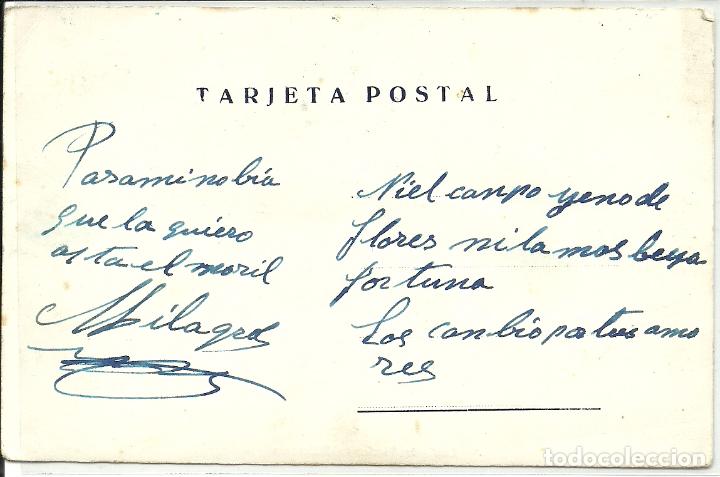 TARJETA POSTAL
Parami nobia
que la quiero
asta el moril
Milagros
Ni el canpo yeno de
flores ni la mas beya
fortuna
Los canbio por tus amo
res
todocoleccion.net